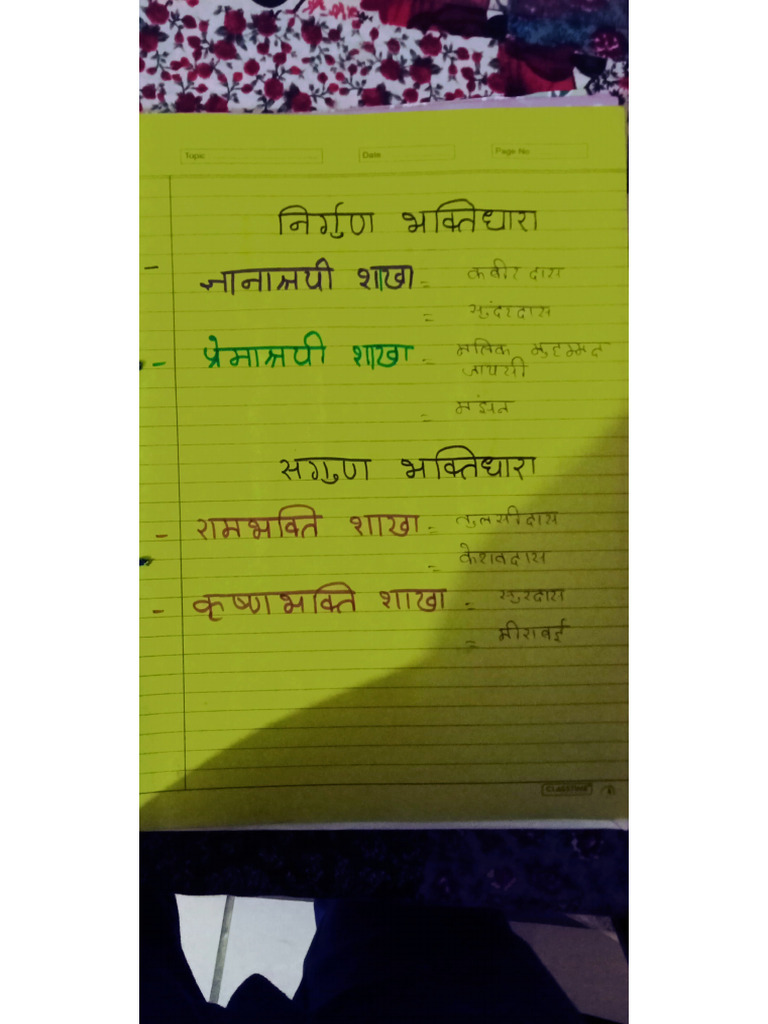 Topic Date Page No
निर्गुण भक्तिधारा
- ज्ञानाश्रयी शाखा = कबीर दास
= सुंदरदास
- प्रेमाश्रयी शाखा = मलिक मुहम्मद
जायसी
= मंझन
सगुण भक्तिधारा
- रामभक्ति शाखा = तुलसीदास
= केशवदास
- कृष्णभक्ति शाखा = सुरदास
= मीराबई
CLASSTIME